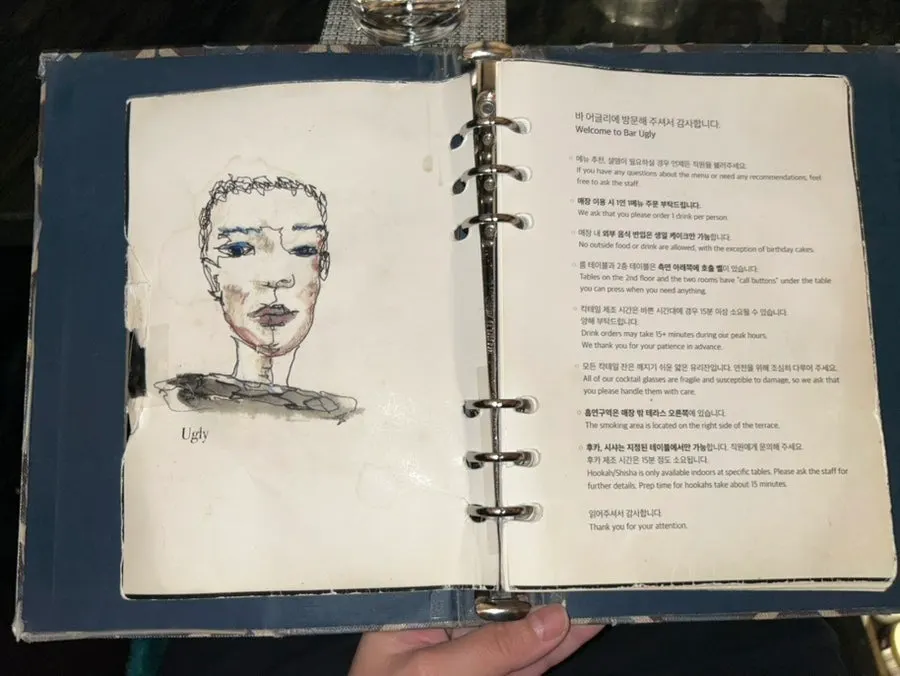 Ugly
바 어글리에 방문해 주셔서 감사합니다.
Welcome to Bar Ugly
메뉴 추천, 설명이 필요하실 경우 언제든 직원을 불러주세요.
If you have any questions about the menu or need any recommendations, feel
free to ask the staff.
매장 이용 시 1인 1메뉴 주문 부탁드립니다.
We ask that you please order 1 drink per person
매장 내 외부 음식 반입은 생일 케이크만 가능합니다.
No outside food or drink are allowed, with the exception of birthday cakes.
룸 테이블과 2층 테이블은 측면 아래쪽에 호출 벨이 있습니다.
Tables on the 2nd floor and the two rooms have "call buttons" under the table
you can press when you need anything.
칵테일 제조 시간은 바쁜 시간대에 경우 15분 이상 소요될 수 있습니다.
양해 부탁드립니다.
Drink orders may take 15+ minutes during our peak hours.
We thank you for your patience in advance.
모든 칵테일 잔은 깨지기 쉬운 얇은 유리잔입니다. 안전을 위해 조심히 다루어 주세요.
All of our cocktail glasses are fragile and susceptible to damage, so we ask that
you please handle them with care.
흡연구역은 매장 밖 테라스 오른쪽에 있습니다.
The smoking area is located on the right side of the terrace.
후카, 시샤는 지정된 테이블에서만 가능합니다. 직원에게 문의해 주세요.
후카 제조 시간은 15분 정도 소요됩니다.
Hookah/Shisha is only available indoors at specific tables. Please ask the staff for
further details. Prep time for hookahs take about 15 minutes.
읽어주셔서 감사합니다.
Thank you for your attention.